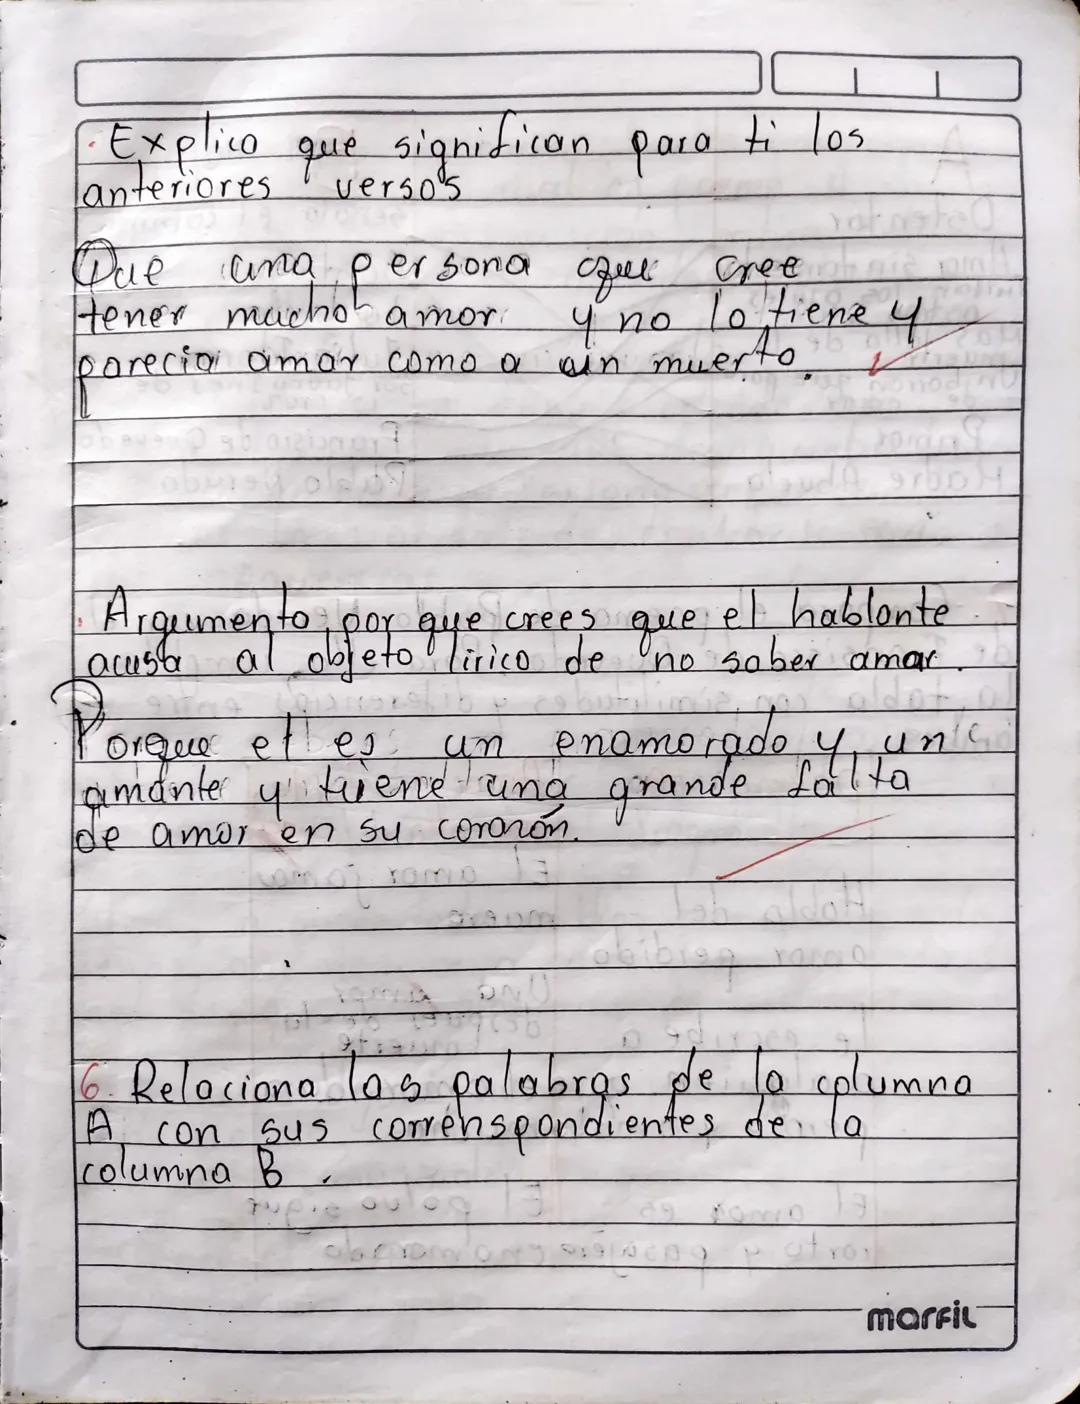 · Explico que significan para ti los
anteriores versos
Que una persona que cree
tener mucho amor y no lo tiene y
parecia amar como a un muerto.
· Argumento por que crees que el hablante
acusa al objeto lirico de no saber amar.
Porque el es un enamorado y un
amante y tiene una grande falta
de amor en su corazón.
6. Relaciona las palabras de la columna
A con sus correnspondientes de la
columna B.
marfil